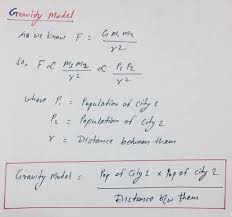 Gravity Model
As we know F = G m₁ m₂ / r²
So, F ∝ m₁ m₂ / r² ∝ P₁ P₂ / r²
where P₁ = Population of city 1
P₂ = Population of city 2
r = Distance between them
Gravity Model = Pop of City 1 × Pop of city 2 / Distance b/w them